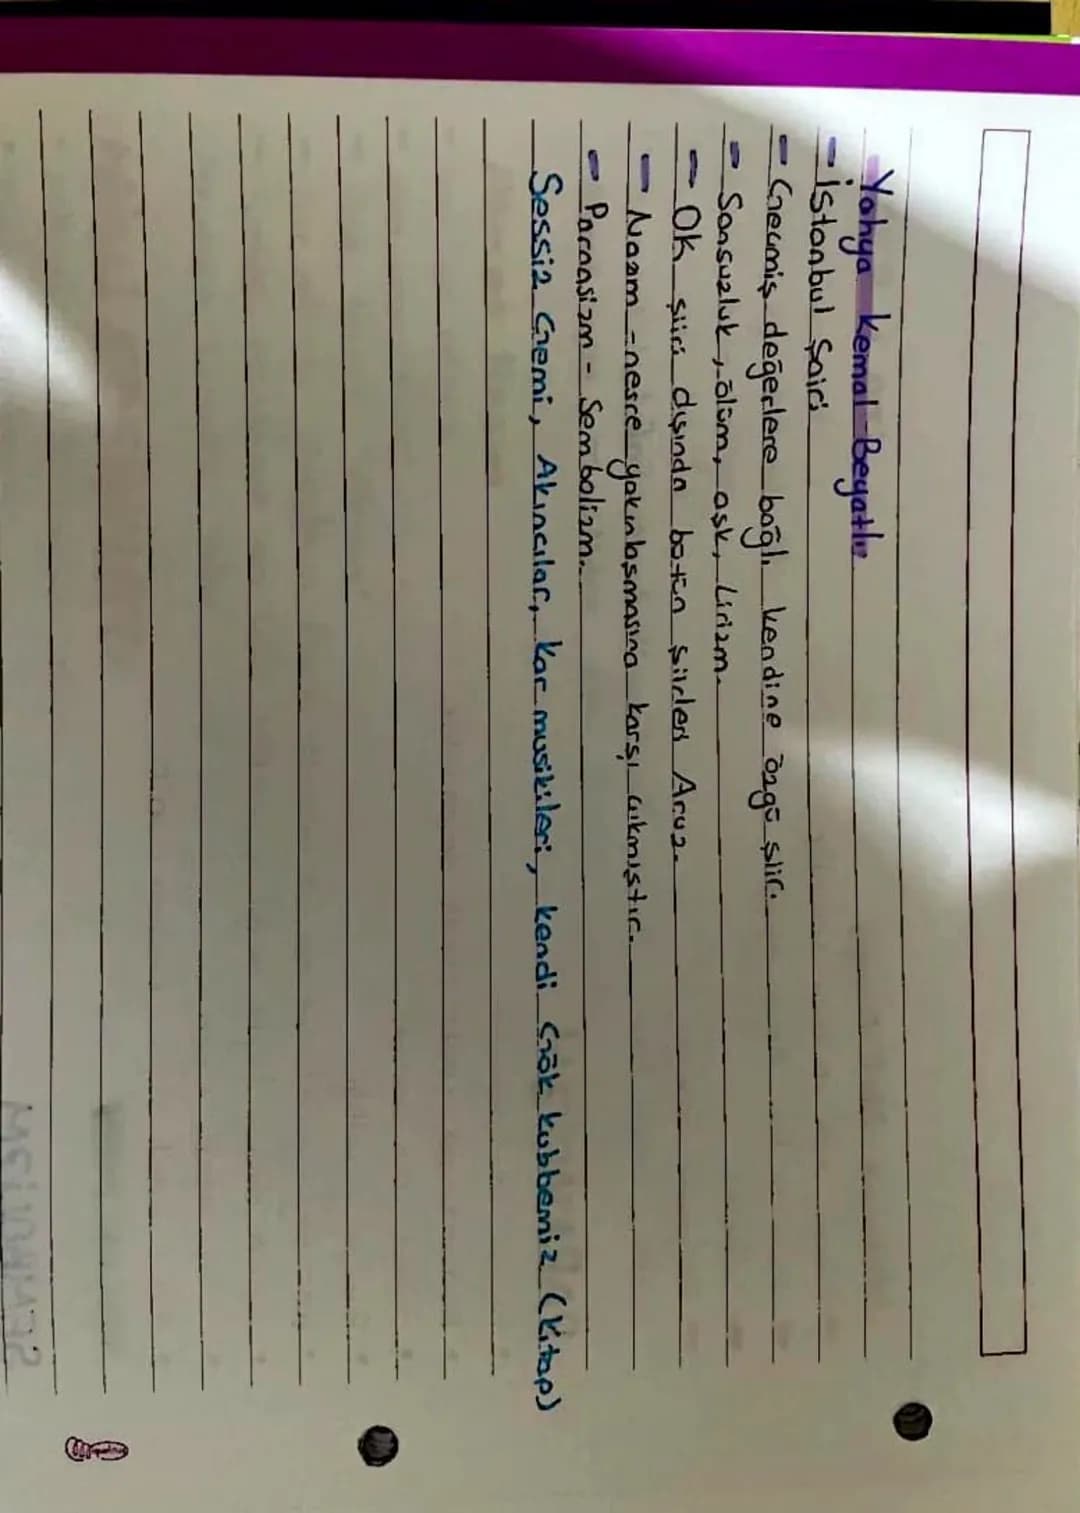 Yahya Kemal Beyatlı
- İstanbul Şairi
- Geçmiş değerlere bağlı kendine özgü şiir.
- Sonsuzluk, ölüm, aşk, Lirizm.
- Ok şiiri dışında bütün şiirleri Aruz.
- Nazım - nesre yakınlaşmasına karşı çıkmıştır.
- Parnasizm - Sembolizm.
Sessiz Gemi, Akıncılar, Kar musikileri, kendi Gök kubbemiz (Kitap)